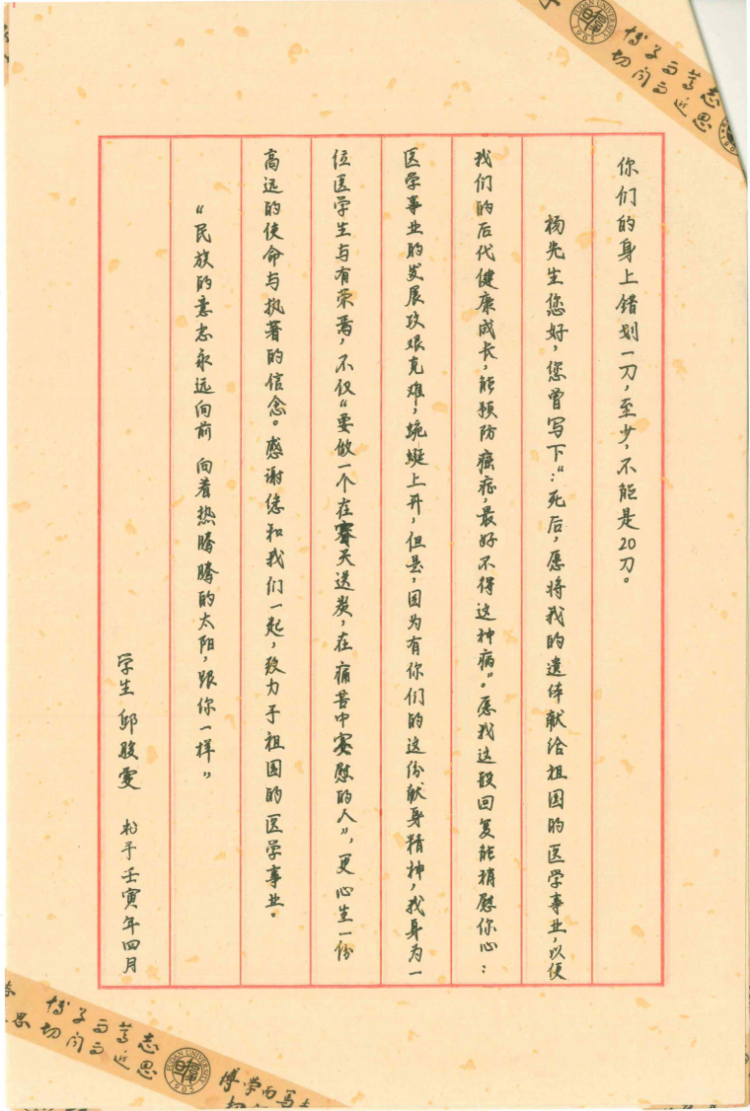 你们的身上错划一刀，至少，不能是20刀。
杨先生您好，您曾写下：“死后，愿将我的遗体献给祖国的医学事业，以便
我们的后代健康成长，能预防癌症，最好不得这种病”。愿我这段回复能稍慰你心：
医学事业的发展攻艰克难，蜿蜒上升，但是，因为有你们的这份献身精神，我身为一
位医学生与有荣焉，不仅“要做一个在寒天送炭，在痛苦中安慰的人”，更心生一份
高远的使命与执著的信念。感谢您和我们一起，致力于祖国的医学事业。
“民族的意志永远向前 向着热腾腾的太阳，跟你一样”
学生 邬骏雯 松于壬寅年四月
博学而笃志
切问而近思
FUDAN UNIVERSITY
1905
博学而笃志
切问而近思
FUDAN UNIVERSITY
1905
博学而笃志